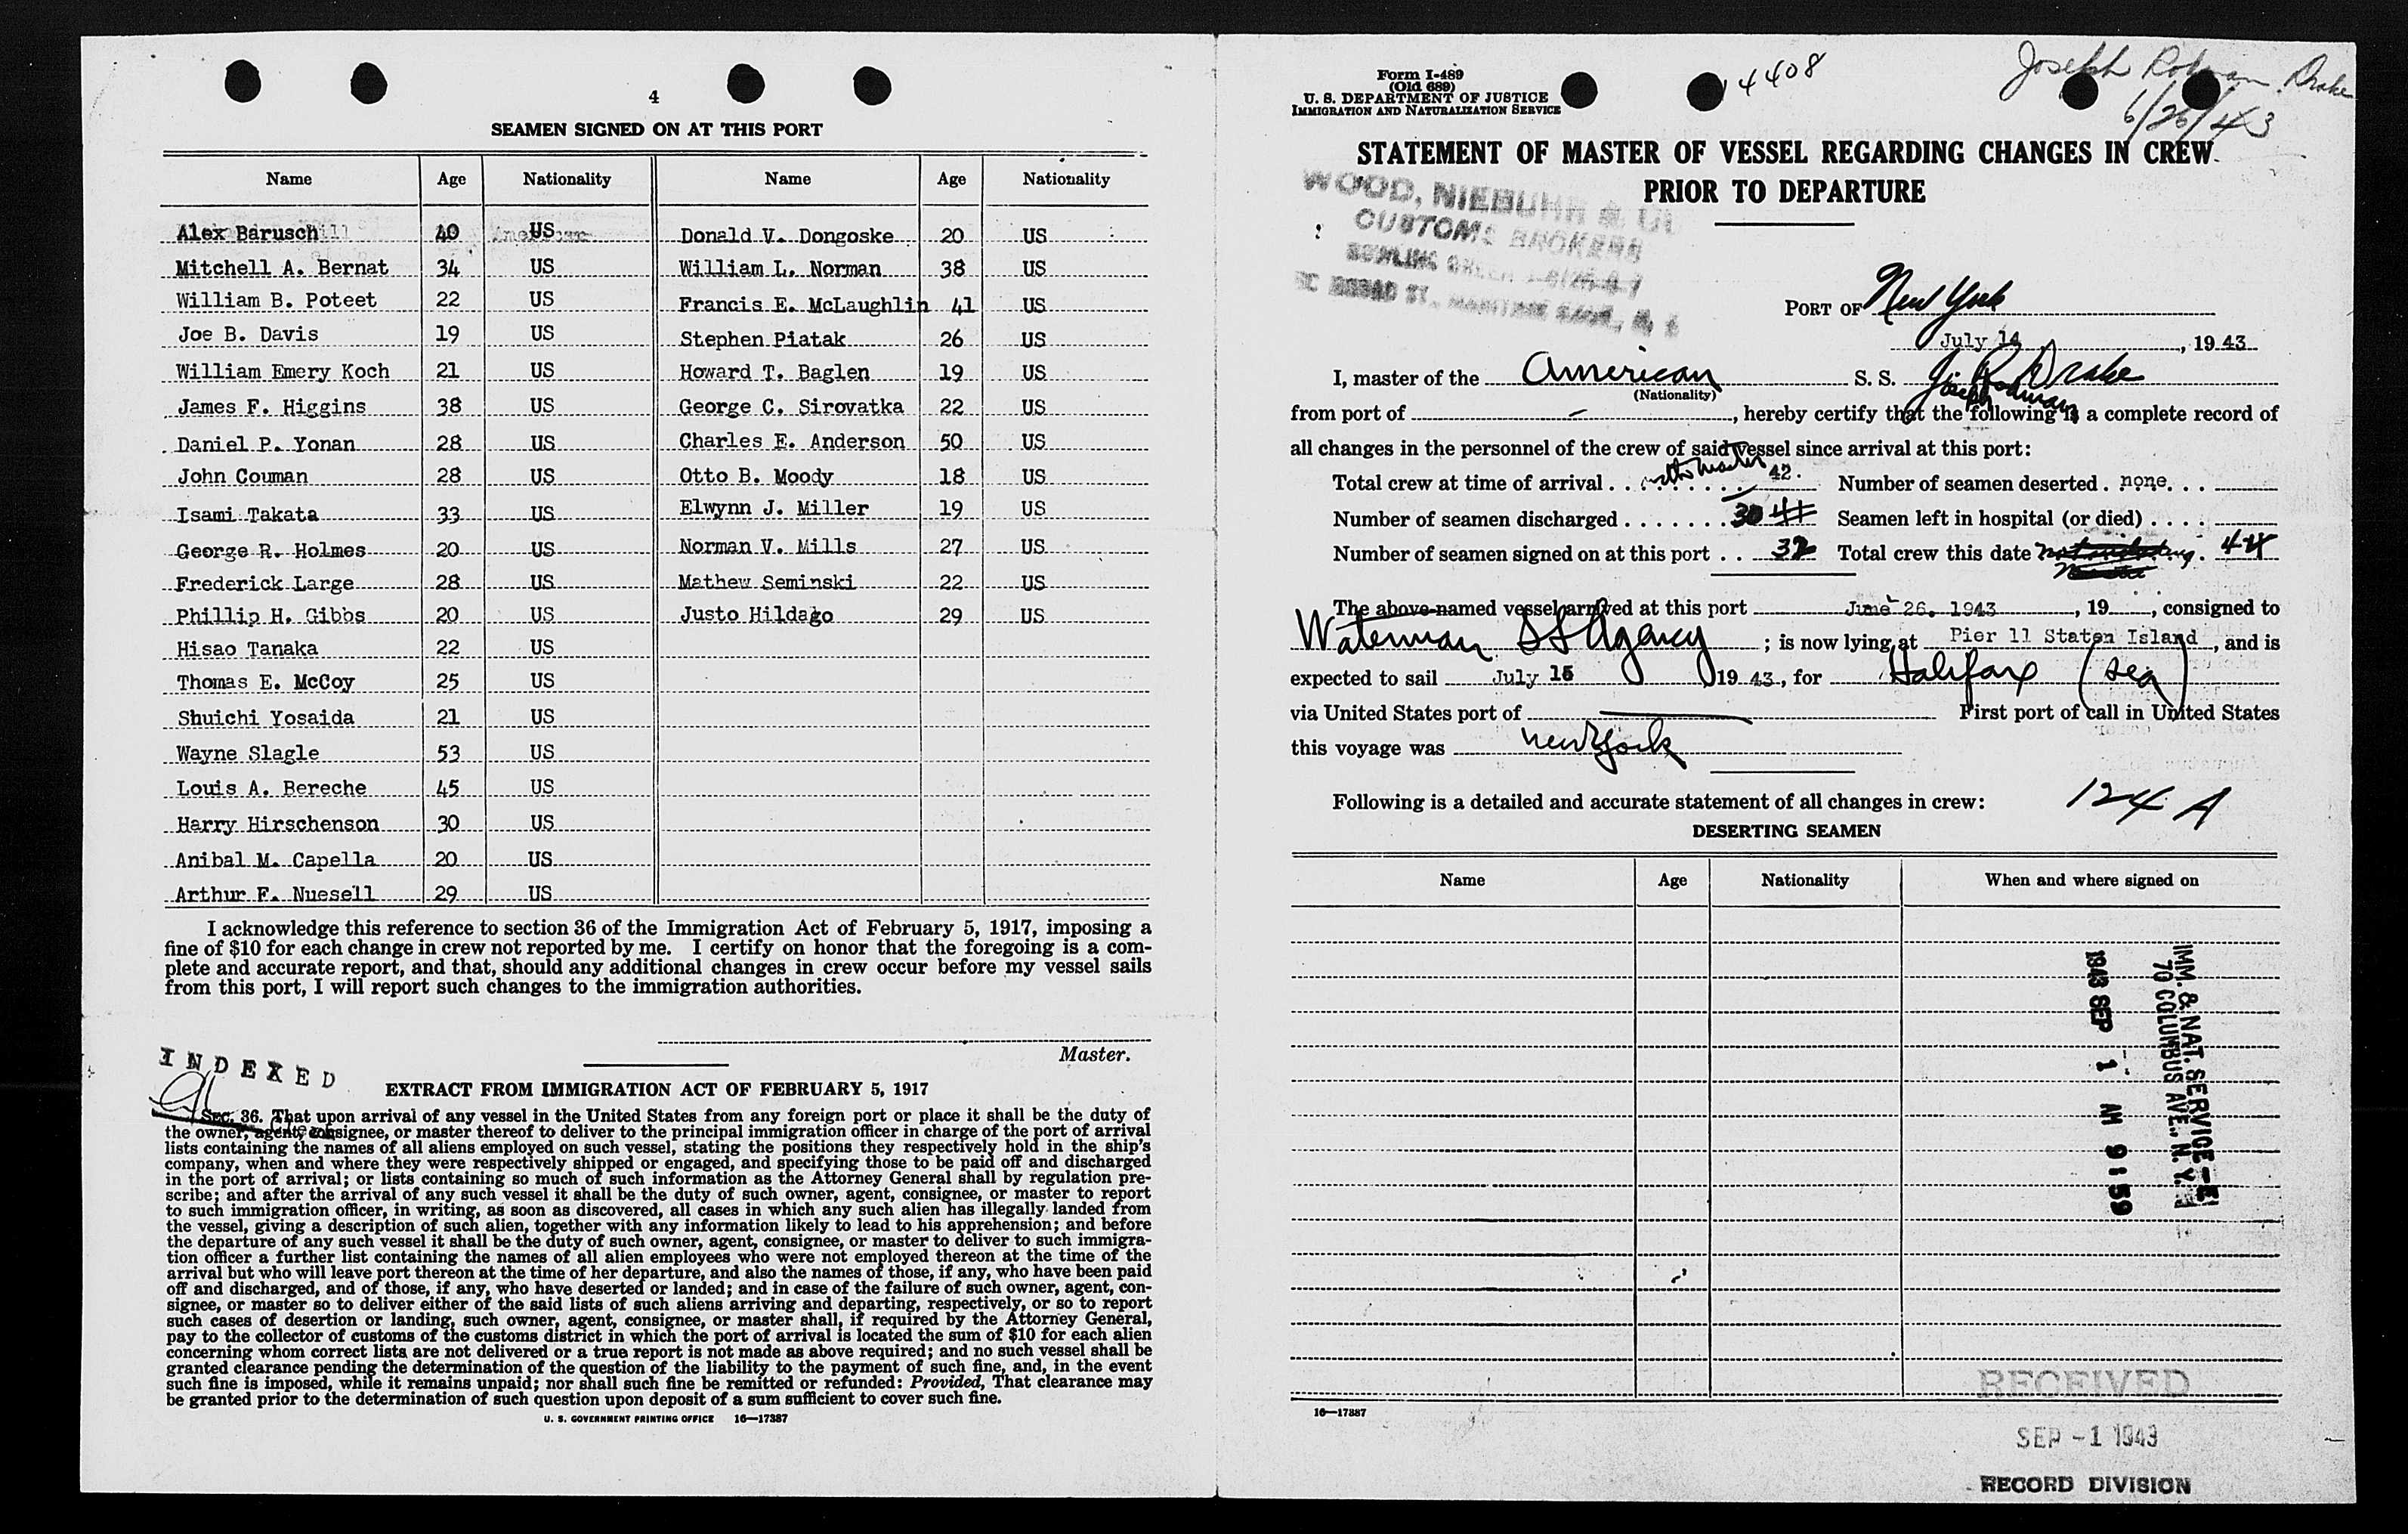 4
SEAMEN SIGNED ON AT THIS PORT
Name Age Nationality Name Age Nationality
Alex Barusch 40 US Donald V. Dongoske 20 US
Mitchell A. Bernat 34 US William L. Norman 38 US
William B. Poteet 22 US Francis E. McLaughlin 41 US
Joe B. Davis 19 US Stephen Piatak 26 US
William Emery Koch 21 US Howard T. Baglen 19 US
James F. Higgins 38 US George C. Sirovatka 22 US
Daniel P. Yonan 28 US Charles E. Anderson 50 US
John Couman 28 US Otto B. Moody 18 US
Isami Takata 33 US Elwynn J. Miller 19 US
George R. Holmes 20 US Norman V. Mills 27 US
Frederick Large 28 US Mathew Seminski 22 US
Phillip H. Gibbs 20 US Justo Hildago 29 US
Hisao Tanaka 22 US
Thomas E. McCoy 25 US
Shuichi Yosaida 21 US
Wayne Slagle 53 US
Louis A. Bereche 45 US
Harry Hirschenson 30 US
Anibal M. Capella 20 US
Arthur F. Nuesell 29 US
I acknowledge this reference to section 36 of the Immigration Act of February 5, 1917, imposing a
fine of $10 for each change in crew not reported by me. I certify on honor that the foregoing is a com-
plete and accurate report, and that, should any additional changes in crew occur before my vessel sails
from this port, I will report such changes to the immigration authorities.
Master.
INDEXED
EXTRACT FROM IMMIGRATION ACT OF FEBRUARY 5, 1917
Sec. 36. That upon arrival of any vessel in the United States from any foreign port or place it shall be the duty of
the owner, agent, consignee, or master thereof to deliver to the principal immigration officer in charge of the port of arrival
lists containing the names of all aliens employed on such vessel, stating the positions they respectively hold in the ship's
company, when and where they were respectively shipped or engaged, and specifying those to be paid off and discharged
in the port of arrival; or lists containing so much of such information as the Attorney General shall by regulation pre-
scribe; and after the arrival of any such vessel it shall be the duty of such owner, agent, consignee, or master to report
to such immigration officer, in writing, as soon as discovered, all cases in which any such alien has illegally landed from
the vessel, giving a description of such alien, together with any information likely to lead to his apprehension; and before
the departure of any such vessel it shall be the duty of such owner, agent, consignee, or master to deliver to such immigra-
tion officer a further list containing the names of all alien employees who were not employed thereon at the time of the
arrival but who will leave port thereon at the time of her departure, and also the names of those, if any, who have been paid
off and discharged, and of those, if any, who have deserted or landed; and in case of the failure of such owner, agent, con-
signee, or master so to deliver either of the said lists of such aliens arriving and departing, respectively, or so to report
such cases of desertion or landing, such owner, agent, consignee, or master shall, if required by the Attorney General,
pay to the collector of customs of the customs district in which the port of arrival is located the sum of $10 for each alien
concerning whom correct lists are not delivered or a true report is not made as above required; and no such vessel shall be
granted clearance pending the determination of the question of the liability to the payment of such fine, and, in the event
such fine is imposed, while it remains unpaid; nor shall such fine be remitted or refunded: Provided, That clearance may
be granted prior to the determination of such question upon deposit of a sum sufficient to cover such fine.
U. S. GOVERNMENT PRINTING OFFICE 16—17387
Form I-489
(Old 689)
U. S. DEPARTMENT OF JUSTICE
IMMIGRATION AND NATURALIZATION SERVICE
4408
Joseph Rodman Drake
6/26/43
STATEMENT OF MASTER OF VESSEL REGARDING CHANGES IN CREW
PRIOR TO DEPARTURE
WOOD, NIEBUHR &
CUSTOMS BROKERS
PORT OF New York
July 14, 1943
I, master of the American S. S. J. R. Drake
(Nationality) Joseph Rodman
from port of -, hereby certify that the following is a complete record of
all changes in the personnel of the crew of said vessel since arrival at this port:
Total crew at time of arrival . . with master 42. Number of seamen deserted . none. . .
Number of seamen discharged . . . . . . . 30 41 Seamen left in hospital (or died) . . . .
Number of seamen signed on at this port . . 32 Total crew this date not including . 44
The above-named vessel arrived at this port June 26, 1943, 19, consigned to
Waterman SS Agency; is now lying at Pier 11 Staten Island, and is
expected to sail July 15 19 43, for Halifax (sea)
via United States port of First port of call in United States
this voyage was New York
Following is a detailed and accurate statement of all changes in crew: 124 A
DESERTING SEAMEN
Name Age Nationality When and where signed on
IMM. & NAT. SERVICE - E
70 COLUMBUS AVE., N. Y.
1943 SEP 1 AM 9 59
16—17387
RECEIVED
SEP -1 1943
RECORD DIVISION